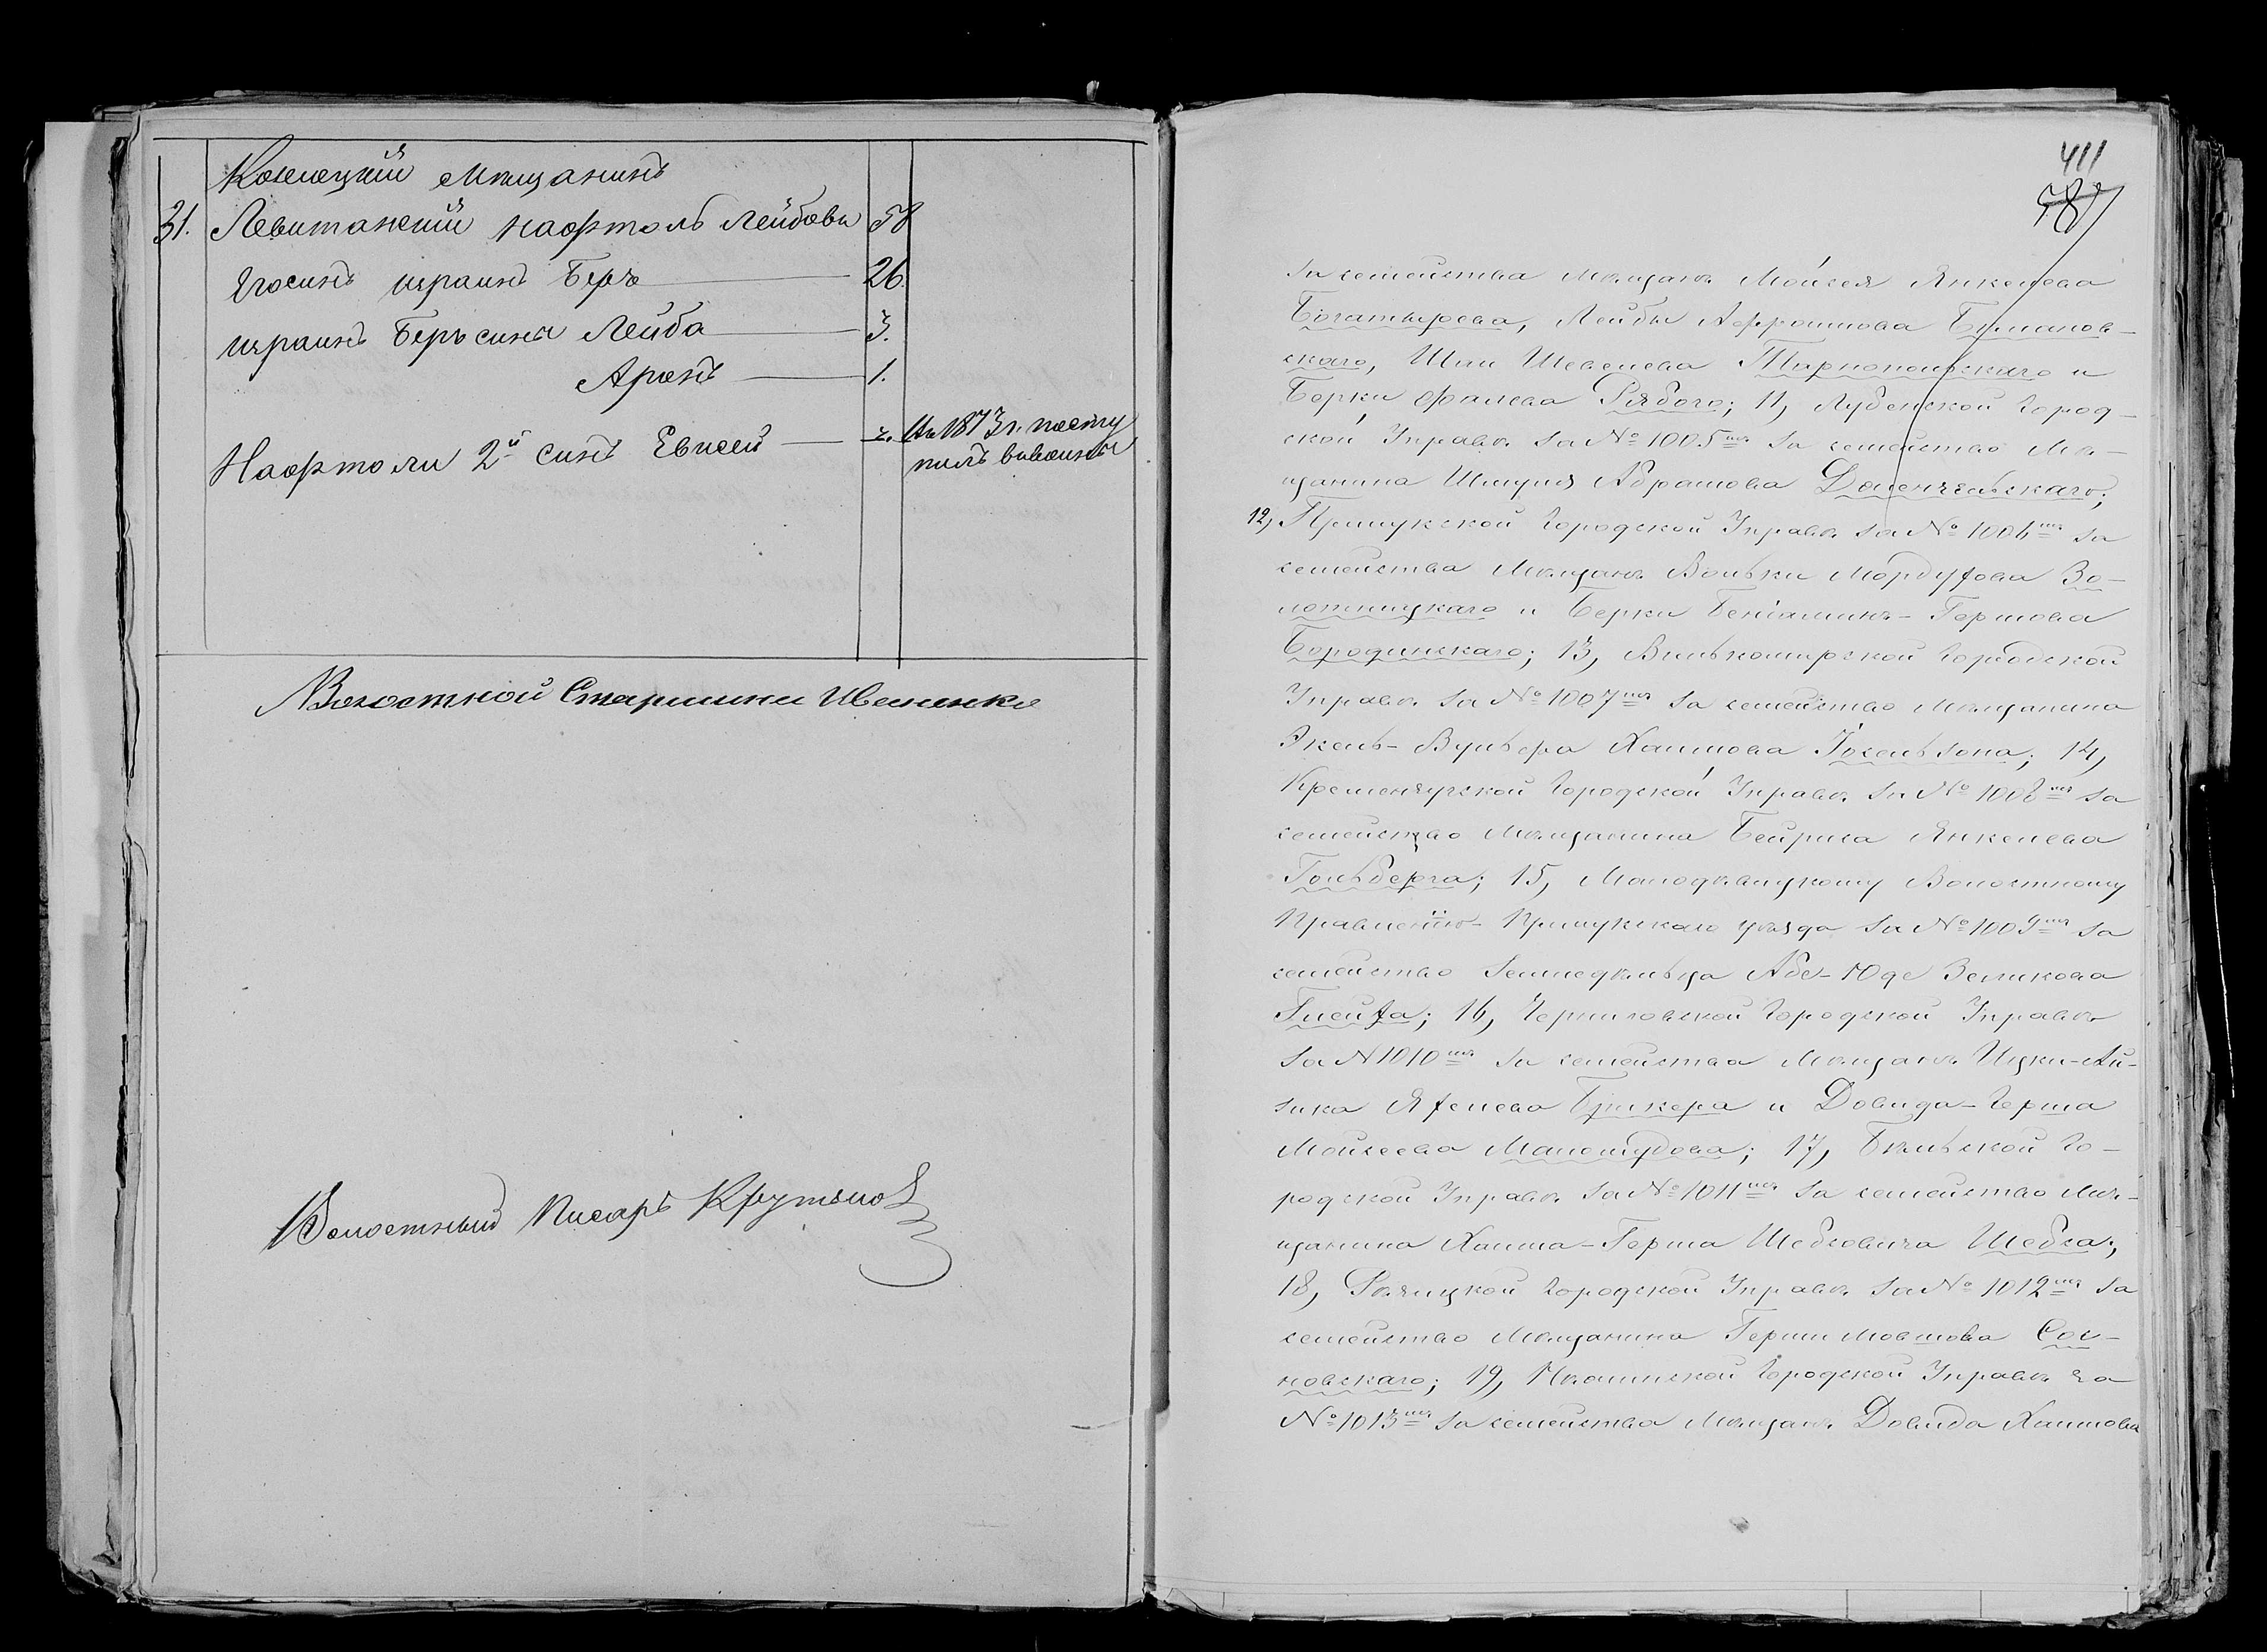 Козелецкий мещанинъ
31. Левитанский Нафтоль Лейбовъ 58
Егосинъ израиль Беръ 26.
израиль Беръ сины Лейба 3.
Аронъ 1.
Нафтоли 2й синъ Евисей 2. въ 1873 г. посту
пилъ ввоины
Волостной Старшина Иваненко
Волостный Писаръ Крутько
411
587
за семейства мѣщанъ Мойсея Янкелева
Богатырева, Лейбы Аффроимова
скаго, Шии Шевелева Тарнопольскаго и
Берки Фалева Рябого; 11, Лубенской Город-
ской Управѣ за № 1005мъ за семейство Мѣ-
щанина Шмуля Абрамова
12, Прилукской Городской Управѣ за № 1006мъ за
семейства Мѣщанъ Вольки Мордухова Зо-
лотницкаго и Берки Бенiаминъ-Гершова
Бородинскаго; 13, Вилькомирской Городской
Управѣ за № 1007мъ за семейство Мѣщанина
Экель-Вульфа Хаимова Іохельзона; 14,
Кременчугской Городской Управѣ за № 1008мъ за
семейство Мѣщанина Бейриса Янкелева
Гольдберга; 15, Малодѣвицкому Волостному
Правленію Прилукскаго уѣзда за № 1009мъ за
семейство Земледѣльца Абе-Юде Зеликова
Глейха; 16, Черниговской Городской Управѣ
за № 1010мъ за семейства Мѣщанъ Ицки-Ай-
зика Яхелева Брикера и Довида-Герша
Мойсеева; 17, Бѣльской Го-
родской Управѣ за № 1011мъ за семейство Мѣ-
щанина Хаима-Герша Шебсовича Шебса;
18, Рѣчицкой Городской Управѣ за № 1012мъ за
семейство Мѣщанина Герши Мовшова Сос-
новскаго; 19, Нѣжинской Городской Управѣ за
№ 1013мъ за семейства Мѣщанъ Довида Хаимова